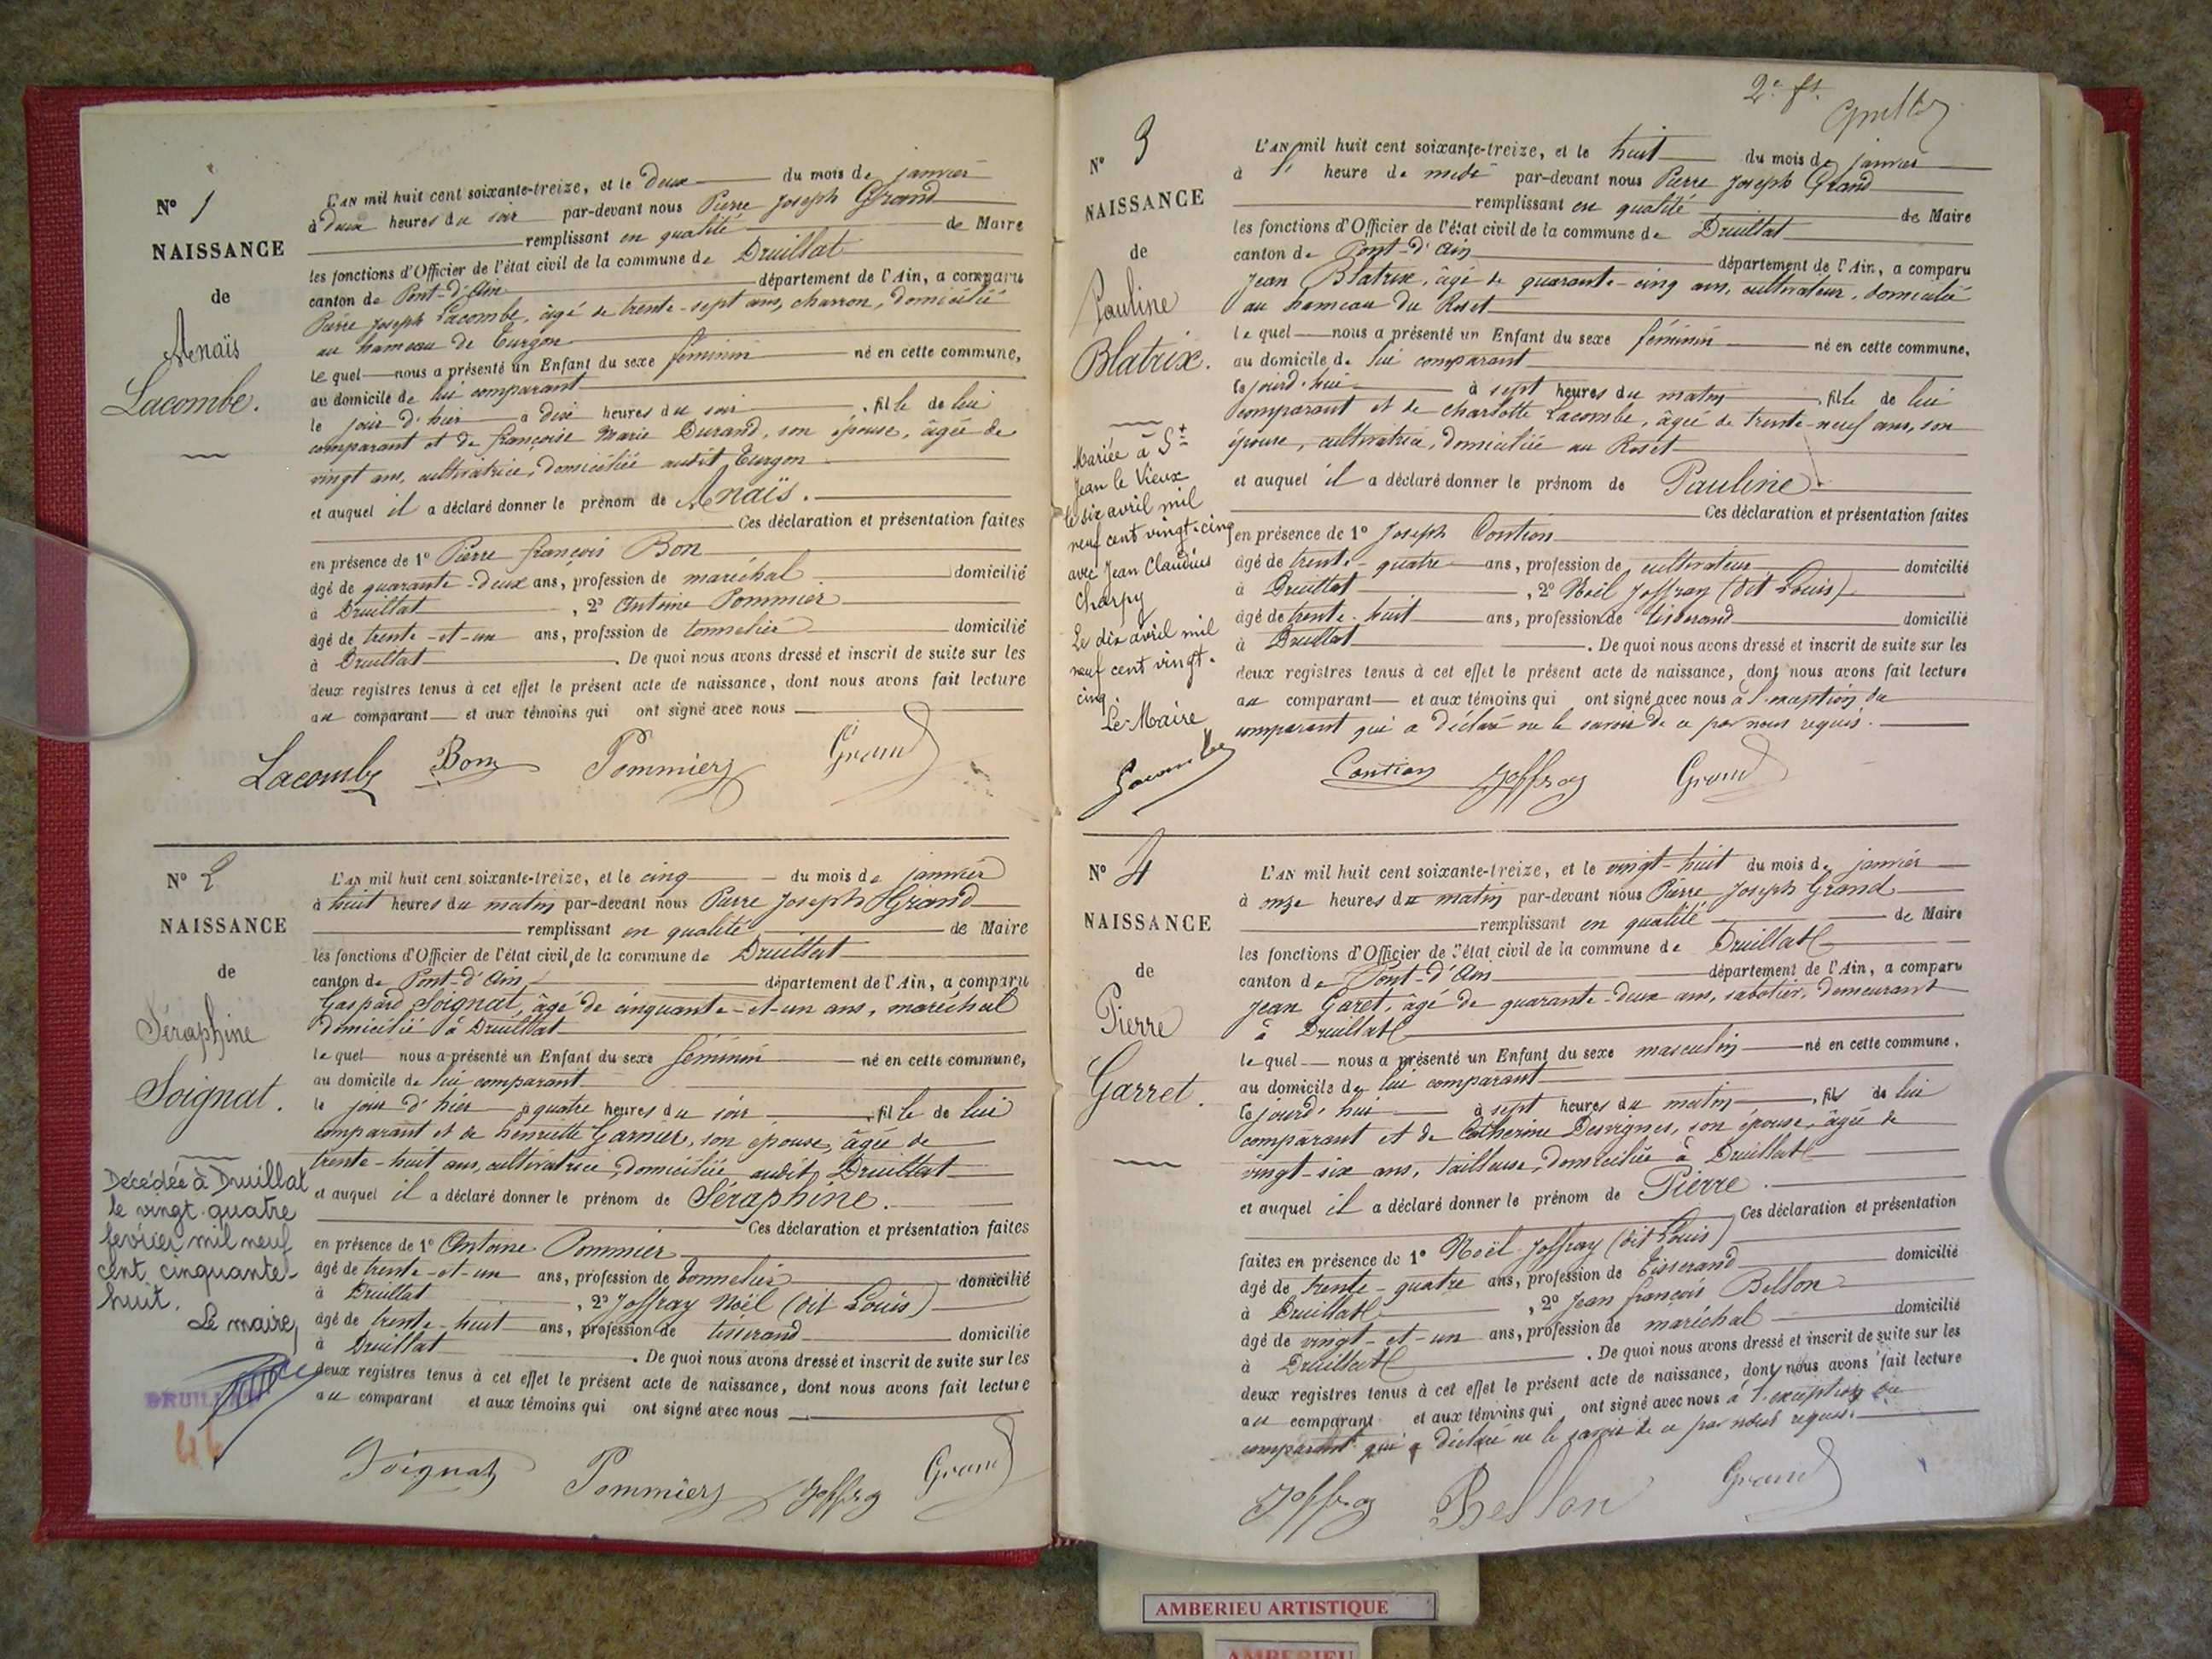 N° 1
NAISSANCE
de
Anaïs
Lacombe.
L'AN mil huit cent soixante-treize, et le deux du mois de janvier
à deux heures du soir par-devant nous Pierre Joseph Grand
remplissant en qualité de Maire
les fonctions d'Officier de l'état civil de la commune de Druillat
canton de Pont-d'Ain département de l'Ain, a comparu
Pierre Joseph Lacombe, âgé de trente-sept ans, charron, domicilié
au hameau de Turgon
le quel nous a présenté un Enfant du sexe féminin né en cette commune,
au domicile de lui comparant
le jour d'hier à dix heures du soir, fille de lui
comparant et de françoise Marie Durand, son épouse, âgée de
vingt ans, cultivatrice, domiciliée audit Turgon
et auquel il a déclaré donner le prénom de Anaïs.
Ces déclaration et présentation faites
en présence de 1° Pierre françois Bon
âgé de quarante-deux ans, profession de maréchal domicilié
à Druillat, 2° Antoine Pommier
âgé de trente-et-un ans, profession de tonnelier domicilié
à Druillat. De quoi nous avons dressé et inscrit de suite sur les
deux registres tenus à cet effet le présent acte de naissance, dont nous avons fait lecture
au comparant et aux témoins qui ont signé avec nous
Lacombe Bon Pommier Grand
N° 2
NAISSANCE
de
Séraphine
Soignat.
Décédée à Druillat
le vingt-quatre
février mil neuf
cent cinquante-
huit.
Le maire,
DRUILLAT
L'AN mil huit cent soixante-treize, et le cinq du mois de janvier
à huit heures du matin par-devant nous Pierre Joseph Grand
remplissant en qualité de Maire
les fonctions d'Officier de l'état civil de la commune de Druillat
canton de Pont-d'Ain département de l'Ain, a comparu
Gaspard Soignat, âgé de cinquante-et-un ans, maréchal
domicilié à Druillat
le quel nous a présenté un Enfant du sexe féminin né en cette commune,
au domicile de lui comparant
le jour d'hier à quatre heures du soir, fille de lui
comparant et de henriette Garnier, son épouse, âgée de
trente-huit ans, cultivatrice, domiciliée audit Druillat
et auquel il a déclaré donner le prénom de Séraphine.
Ces déclaration et présentation faites
en présence de 1° Antoine Pommier
âgé de trente-et-un ans, profession de tonnelier domicilié
à Druillat, 2° Joffray Noël (dit Louis)
âgé de trente-huit ans, profession de tisserand domicilié
à Druillat. De quoi nous avons dressé et inscrit de suite sur les
deux registres tenus à cet effet le présent acte de naissance, dont nous avons fait lecture
au comparant et aux témoins qui ont signé avec nous
Soignat Pommier Joffray Grand
2e ft.
N° 3
NAISSANCE
de
Pauline
Blatrix.
Mariée à St
Jean le Vieux
le six avril mil
neuf cent vingt-cinq
avec Jean Claudius
Charpy
Le dix avril mil
neuf cent vingt-
cinq
Le Maire
L'AN mil huit cent soixante-treize, et le huit du mois de janvier
à l' heure de midi par-devant nous Pierre Joseph Grand
remplissant en qualité de Maire
les fonctions d'Officier de l'état civil de la commune de Druillat
canton de Pont-d'Ain département de l'Ain, a comparu
Jean Blatrix, âgé de quarante-cinq ans, cultivateur, domicilié
au hameau du Roset
le quel nous a présenté un Enfant du sexe féminin né en cette commune,
au domicile de lui comparant
ce jourd'hui à sept heures du matin, fille de lui
comparant et de charlotte Lacombe, âgée de trente-neuf ans, son
épouse, cultivatrice, domiciliée au Roset
et auquel il a déclaré donner le prénom de Pauline.
Ces déclaration et présentation faites
en présence de 1° Joseph Contion
âgé de trente-quatre ans, profession de cultivateur domicilié
à Druillat, 2° Noël Joffray (dit Louis)
âgé de trente-huit ans, profession de tisserand domicilié
à Druillat. De quoi nous avons dressé et inscrit de suite sur les
deux registres tenus à cet effet le présent acte de naissance, dont nous avons fait lecture
au comparant et aux témoins qui ont signé avec nous à l'exception du
comparant qui a déclaré ne le savoir de ce par nous requis.
Contion Joffray Grand
N° 4
NAISSANCE
de
Pierre
Garret.
L'AN mil huit cent soixante-treize, et le vingt-huit du mois de janvier
à onze heures du matin par-devant nous Pierre Joseph Grand
remplissant en qualité de Maire
les fonctions d'Officier de l'état civil de la commune de Druillat
canton de Pont-d'Ain département de l'Ain, a comparu
Jean Garet, âgé de quarante-deux ans, sabotier, demeurant
à Druillat
le quel nous a présenté un Enfant du sexe masculin né en cette commune,
au domicile de lui comparant
ce jourd'hui à sept heures du matin, fils de lui
comparant et de Catherine Desvignes, son épouse, âgée de
vingt-six ans, tailleuse, domiciliée à Druillat
et auquel il a déclaré donner le prénom de Pierre.
Ces déclaration et présentation
faites en présence de 1° Noël Joffray (dit Louis)
âgé de trente-quatre ans, profession de tisserand domicilié
à Druillat, 2° Jean françois Bellon
âgé de vingt-et-un ans, profession de maréchal domicilié
à Druillat. De quoi nous avons dressé et inscrit de suite sur les
deux registres tenus à cet effet le présent acte de naissance, dont nous avons fait lecture
au comparant et aux témoins qui ont signé avec nous à l'exception du
comparant qui a déclaré ne le savoir de ce par nous requis.
Joffray Bellon Grand
AMBERIEU ARTISTIQUE
AMBERIEU